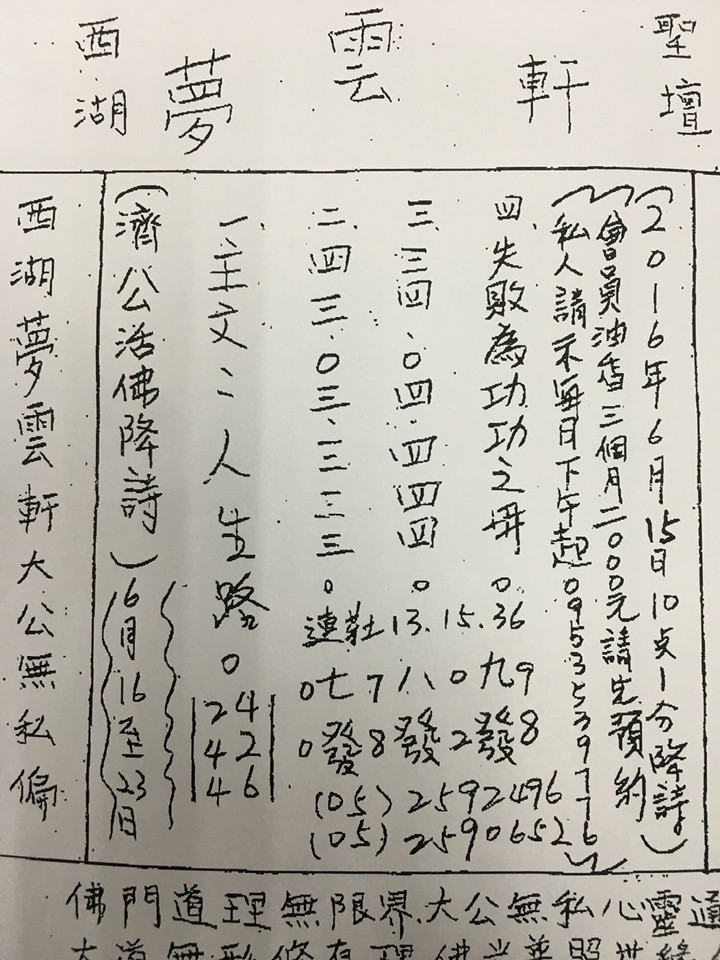 西湖 夢雲軒 聖壇
西湖夢雲軒大公無私偏
(濟公活佛降詩)6月16至23日
一.主文:人生路。
24
42
46
二.四三.0三.三三三。
三.三四.0四.四四四。
四.失敗為功功之母。
連莊13.15.36
0七7八0九9
0發8發2發8
(05)2592496
(05)2590652
(私人請示每日下午起0953539776)
(會員油香三個月二000元請先預約)
(2016年6月15日10点1分降詩)
佛門道理無限界.大公無私心靈通